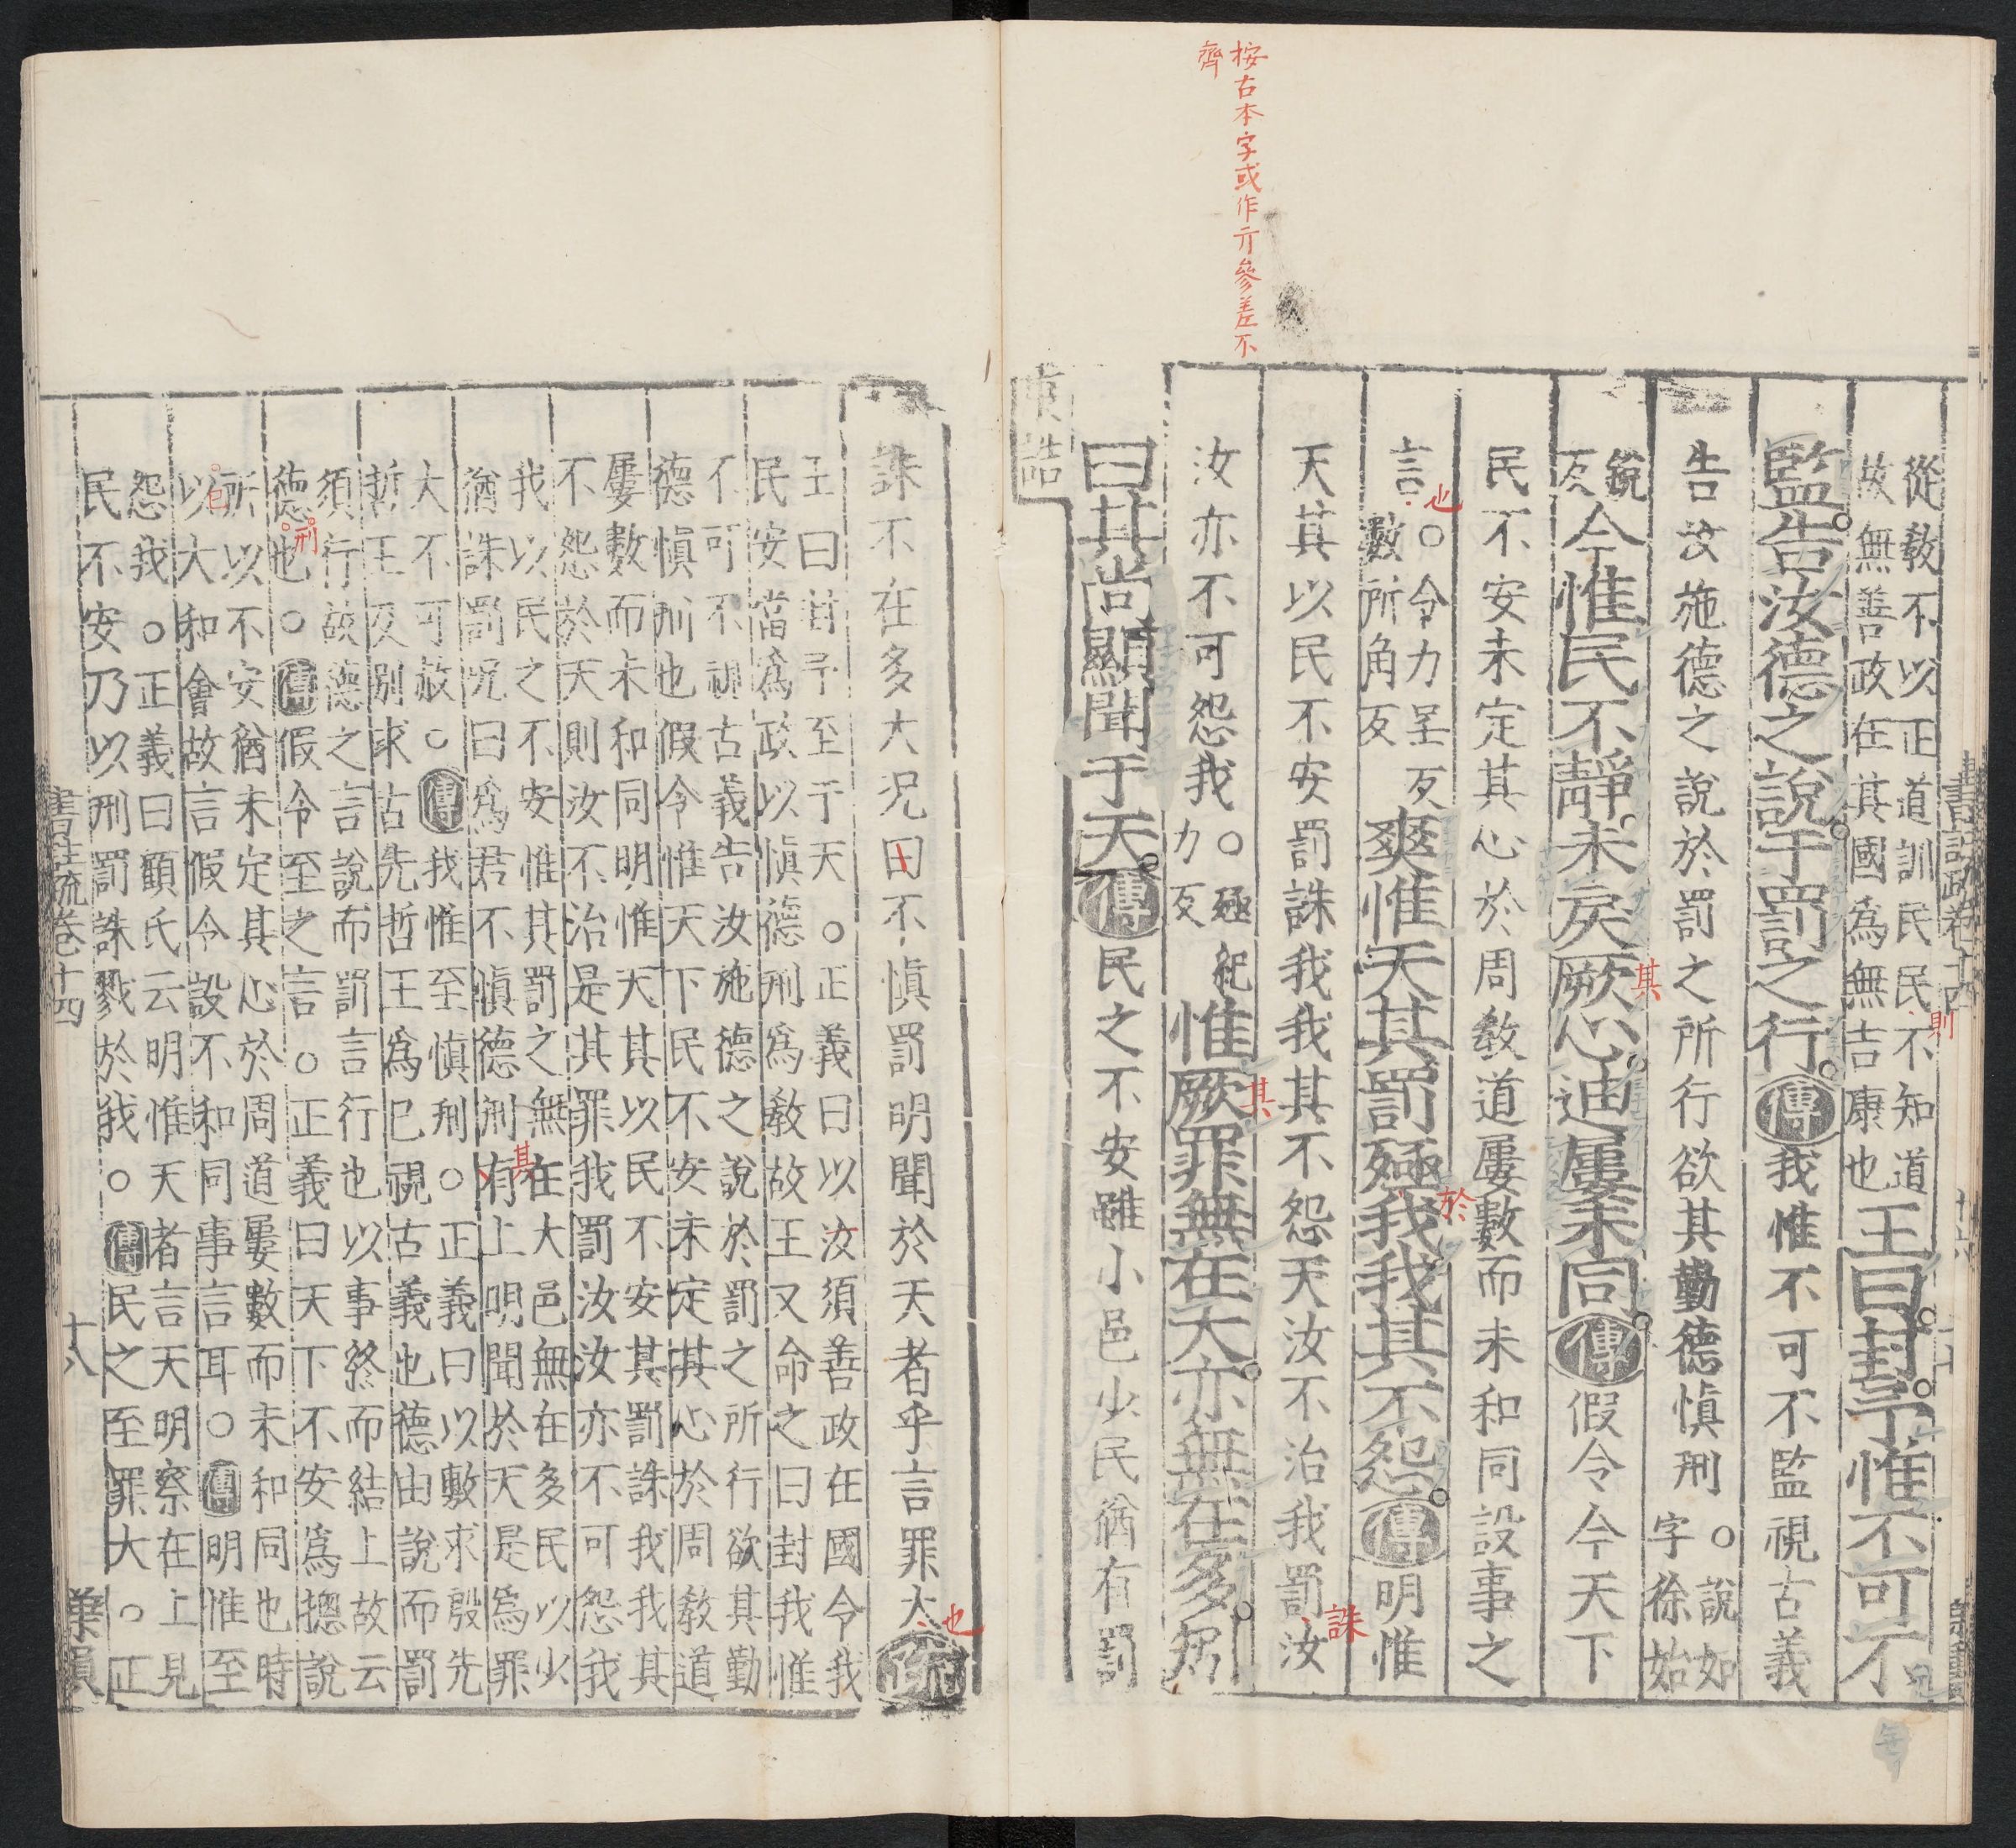 按古本字或作亓參差不
齊
從敎不以正道訓民民不知道
則
故無善政在其國為無吉康也
王曰封予惟不可不
監告汝德之說于罰之行傳我惟不可不監視古義
告汝施德之說於罰之所行欲其勤德慎刑○說如
字徐始
銳
反
今惟民不靜未戾厥心迪屢未同傳假令今天下
其
民不安未定其心於周敎道屢數而未和同設事之
言
也
○令力呈反
數所角反
爽惟天其罰殛我我其不怨傳明惟
於
天其以民不安罰誅我我其不怨天汝不治我罰汝
誅
汝亦不可怨我○殛紀
力反
惟厥罪無在大亦無在多矧
其
曰其尚顯聞于天傳民之不安雖小邑少民猶有罰
康誥
誅不在多大況曰不慎罰明聞於天者乎言罪大疏
也
王曰封予至于天○正義曰以汝須善政在國令我
民安當為政以慎德刑為敎故王又命之曰封我惟
不可不視古義告汝施德之說於罰之所行欲其勤
德慎刑也假令惟天下民不安未定其心於周敎道
屢數而未和同明惟天其以民不安其罰誅我我其
不怨於天則汝不治是其罪我罰汝汝亦不可怨我
我以民之不安惟其罰之無在大邑無在多民以少
其
猶誅罰況曰為君不慎德刑有上明聞於天是為罪
大不可赦○傳我惟至慎刑○正義曰以敷求殷先
哲王及別求古先哲王為已視古義也德由說而罰
須行故德之言說而罰言行也以事終而結上故云
刑
德也○傳假令至之言○正義曰天下不安為摠說
所以不安猶未定其心於周道屢數而未和同也時
白
以大和會故言假令設不和同事言耳○傳明惟至
怨我○正義曰顧氏云明惟天者言天明察在上見
民不安乃以刑罰誅戮於我○傳民之至罪大○正
書註疏卷十四
十八